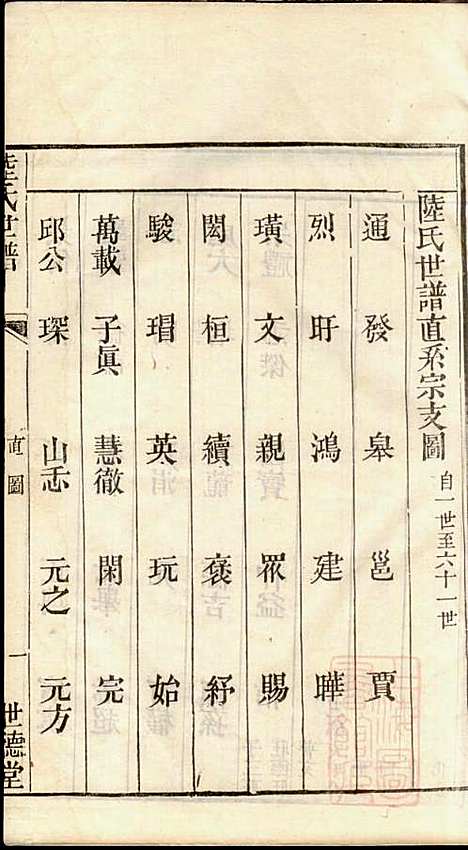 陸氏世譜直系宗支圖 自一世至六十一世
通 發 皋 邕 賈
烈 盱 鴻 建 曄
璜 文 親 眾 賜
閎 桓 續 褒 紆
駿 瑁 英 玩 始
萬載 子眞 慧徹 閑 完
邱公 琛 山志 元之 元方
陸氏世譜 直圖 一 世德堂